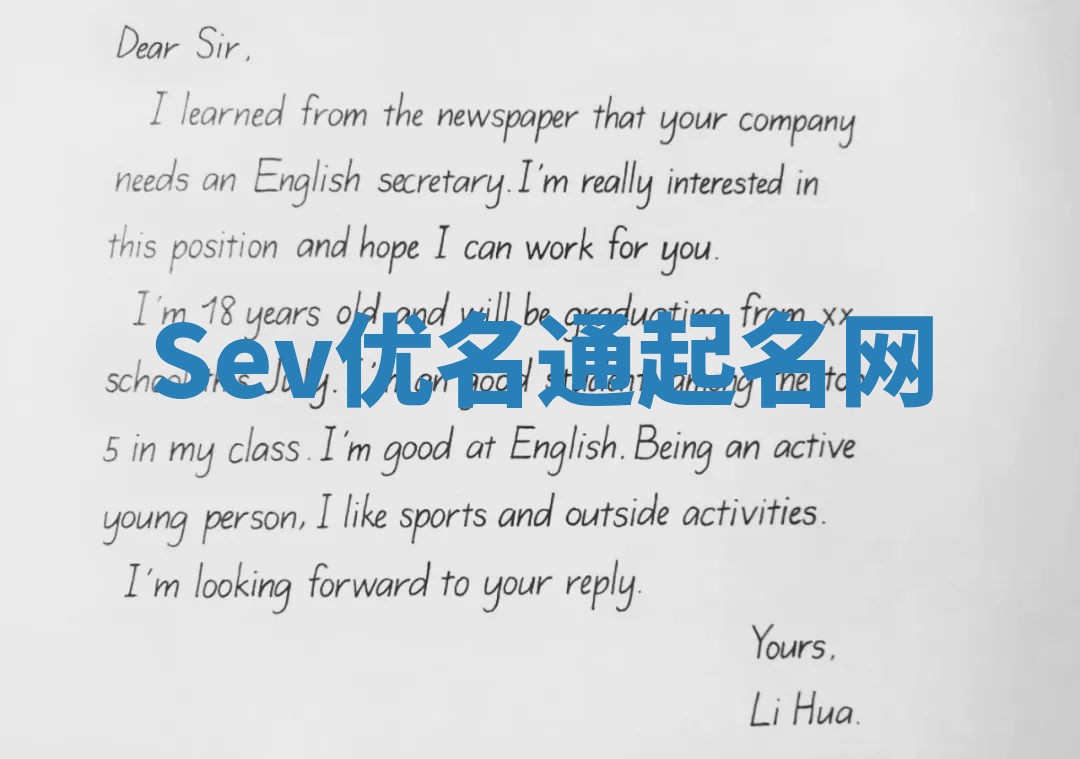 Dear Sir,
I learned from the newspaper that your company
needs an English secretary. I'm really interested in
this position and hope I can work for you.
I'm 18 years old and will be graduating from xx
Sev优名通起名网
school this July. I'm an good student among the top
5 in my class. I'm good at English. Being an active
young person, I like sports and outside activities.
I'm looking forward to your reply.
Yours,
Li Hua.